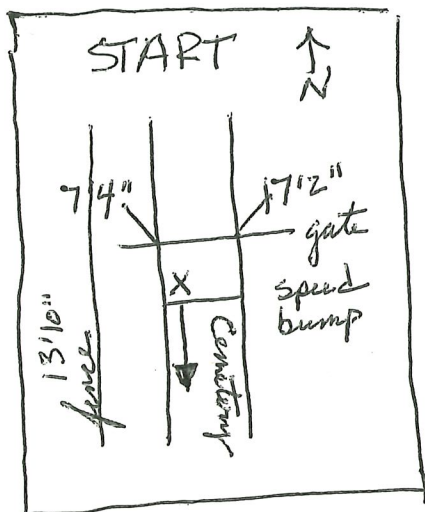 START
N
7'4"
17'2"
gate
X
speed
bump
13'10"
fence
Cemetery